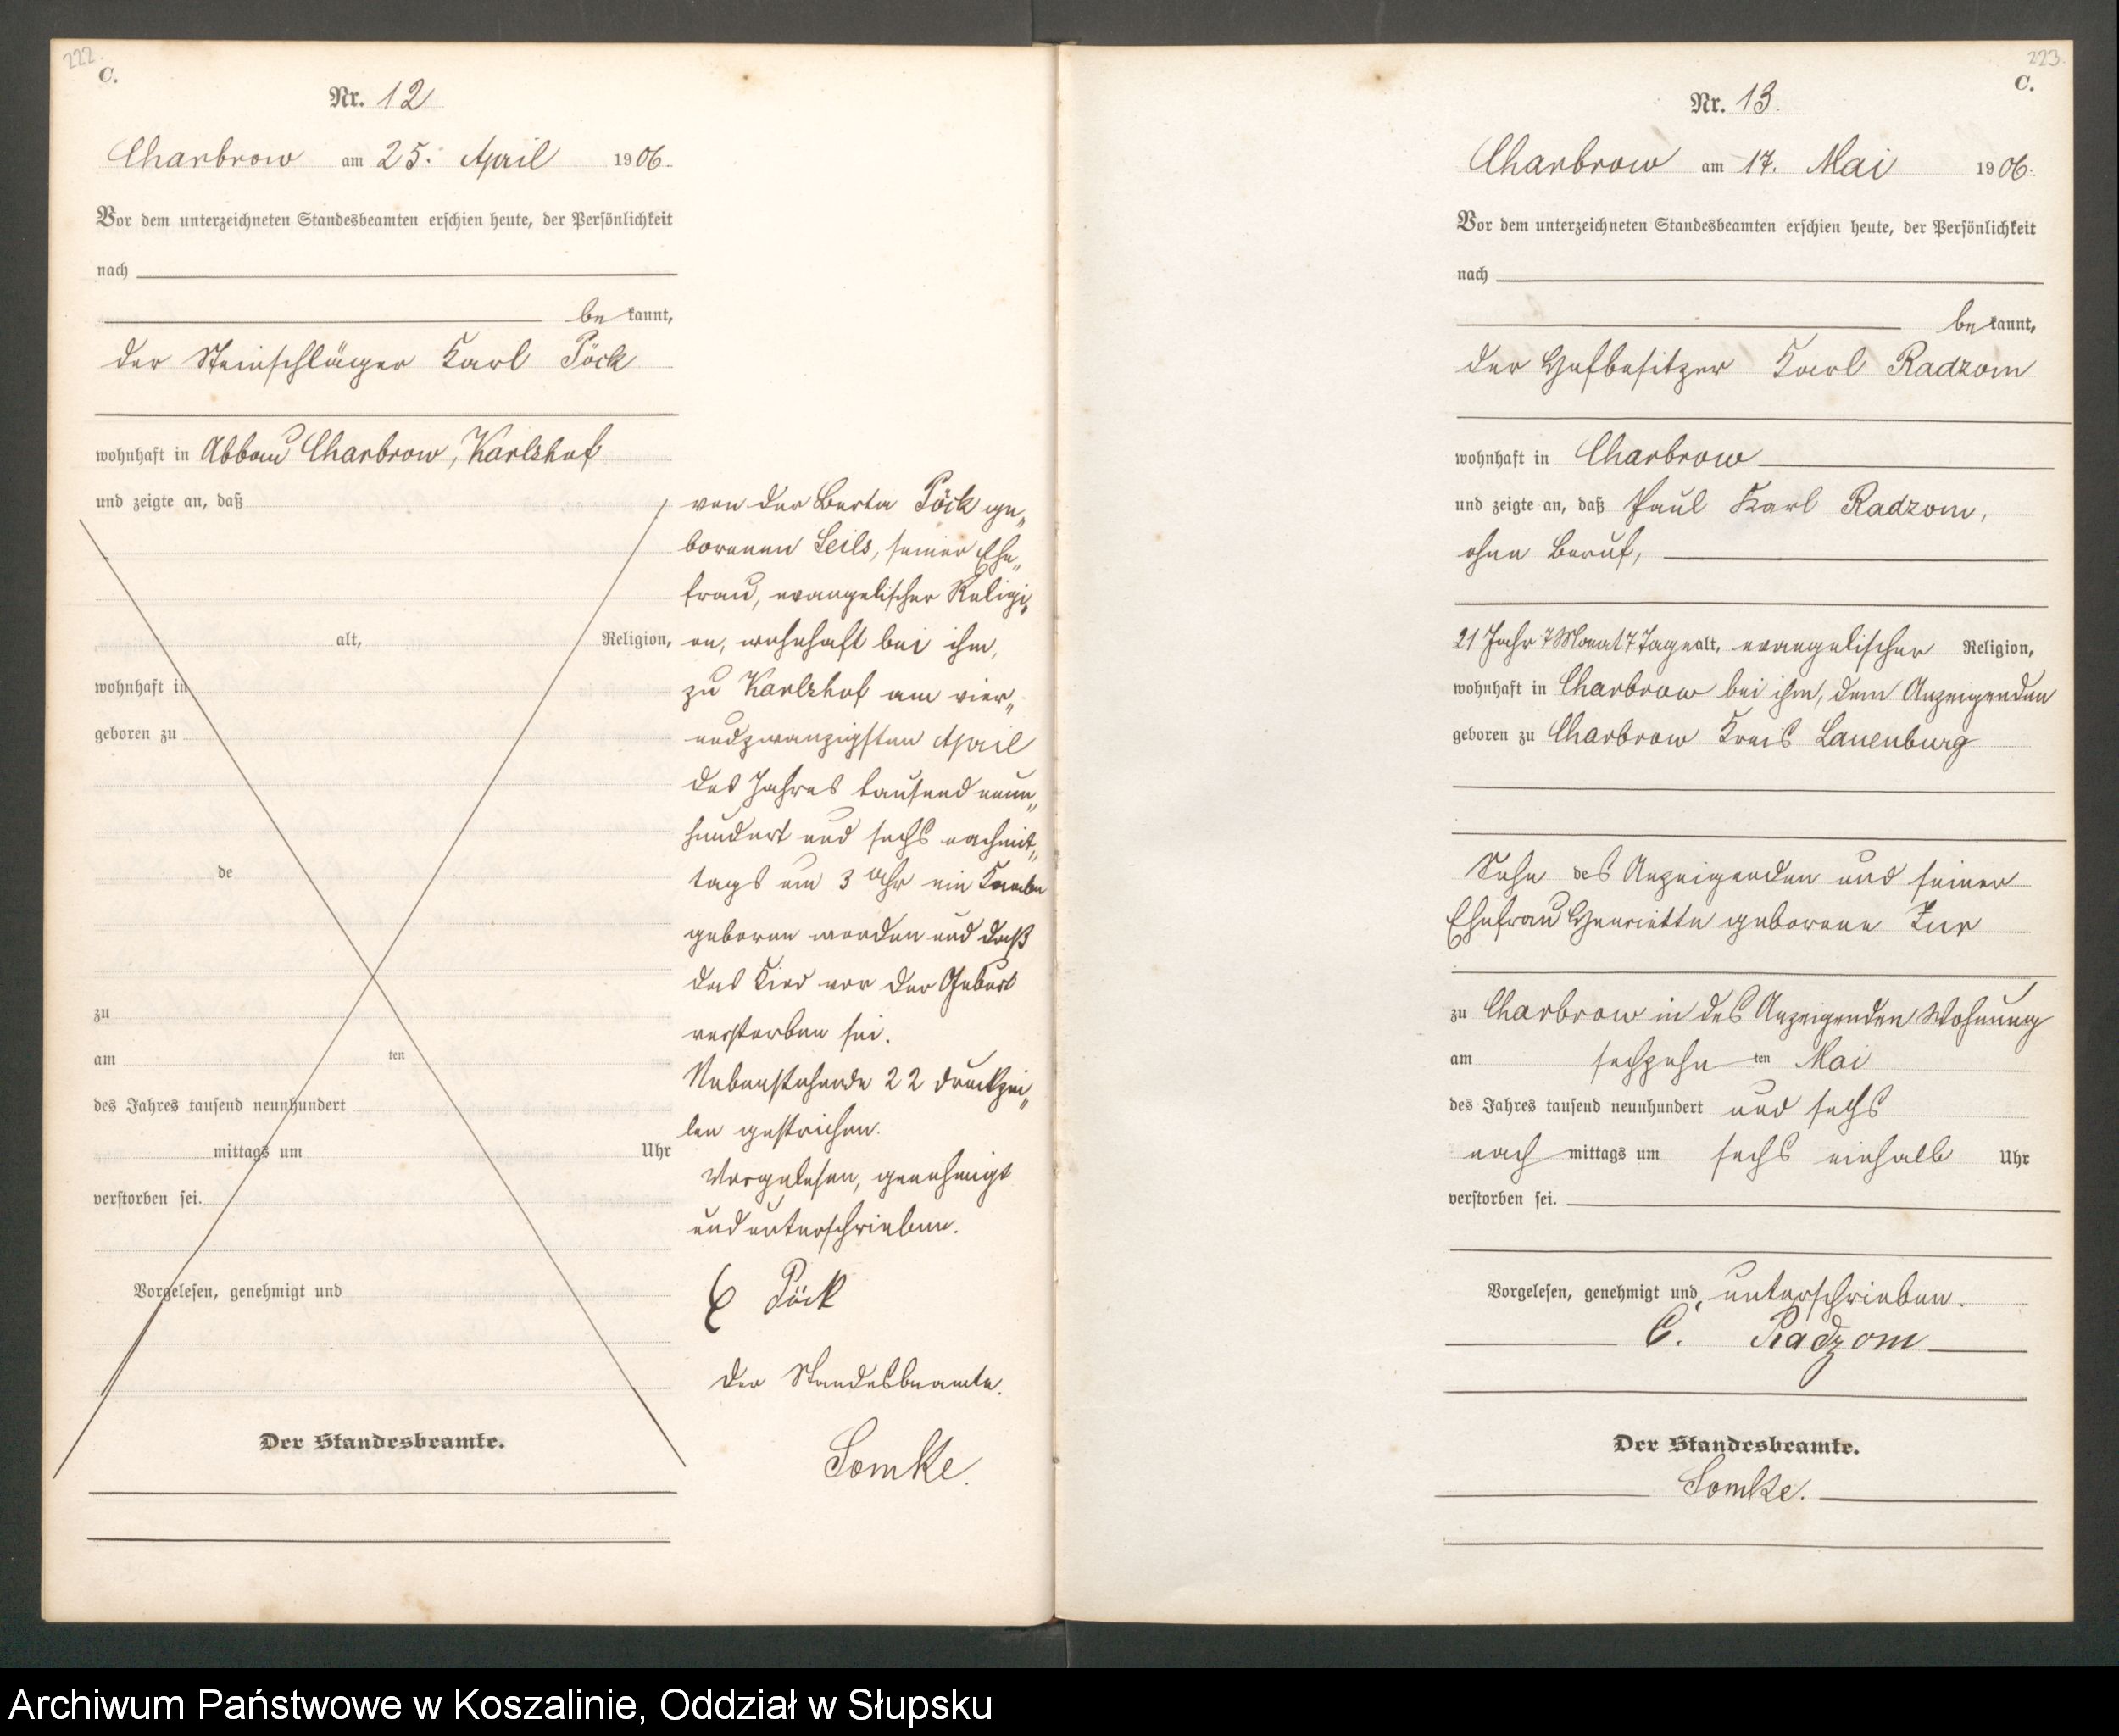 222.
C.
Nr. 12
Charbrow am 25. April 1906.
Vor dem unterzeichneten Standesbeamten erschien heute, der Persönlichkeit
nach
be kannt,
der Steinschläger Karl Pöck
wohnhaft in Abbau Charbrow, Karlshof
und zeigte an, daß
alt, Religion,
wohnhaft in
geboren zu
de
zu
am ten
des Jahres tausend neunhundert
mittags um Uhr
verstorben sei.
Vorgelesen, genehmigt und
Der Standesbeamte.
von der Berta Pöck ge„
borenen Seils, seiner Ehe„
frau, evangelischer Religi„
on, wohnhaft bei ihm,
zu Karlshof am vier„
undzwanzigsten April
des Jahres tausend neun„
hundert und sechs nachmit„
tags um 3 Uhr ein Knabe
geboren worden und daß
das Kind vor der Geburt
verstorben sei.
Nebenstehende 22 Druckzei„
len gestrichen.
Vorgelesen, genehmigt
und unterschrieben.
C Pöck
Der Standesbeamte.
Somke.
223.
C.
Nr. 13.
Charbrow am 17. Mai 1906.
Vor dem unterzeichneten Standesbeamten erschien heute, der Persönlichkeit
nach
be kannt,
der Hofbesitzer Karl Radzom
wohnhaft in Charbrow
und zeigte an, daß Paul Karl Radzom,
ohne Beruf,
21 Jahr 7 Monat 7 Tage alt, evangelischer Religion,
wohnhaft in Charbrow bei ihm, dem Anzeigenden
geboren zu Charbrow Kreis Lauenburg
Sohn des Anzeigenden und seiner
Ehefrau Henriette geborene Zur
zu Charbrow in des Anzeigenden Wohnung
am sechzehn ten Mai
des Jahres tausend neunhundert und sechs
nach mittags um sechs einhalb Uhr
verstorben sei.
Vorgelesen, genehmigt und unterschrieben.
C. Radzom
Der Standesbeamte.
Somke.
Archiwum Państwowe w Koszalinie, Oddział w Słupsku